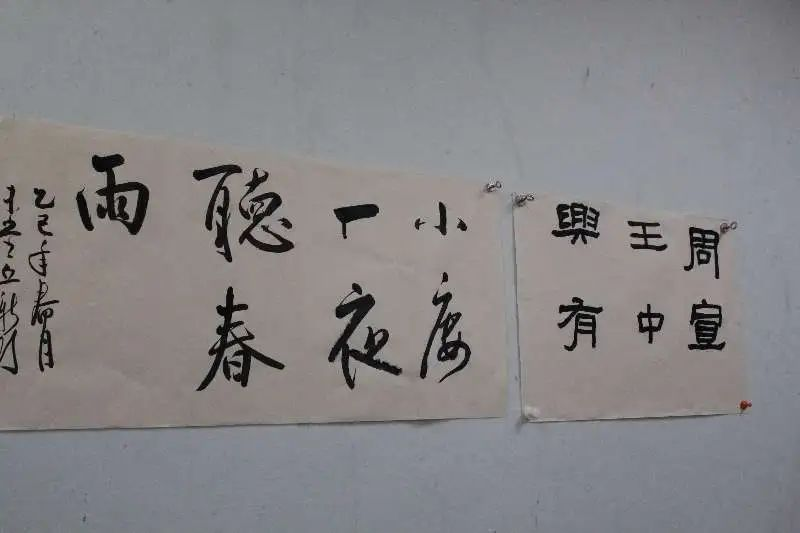 周宣
王中
興有
小廔
一夜
聽春
雨
乙巳年春月